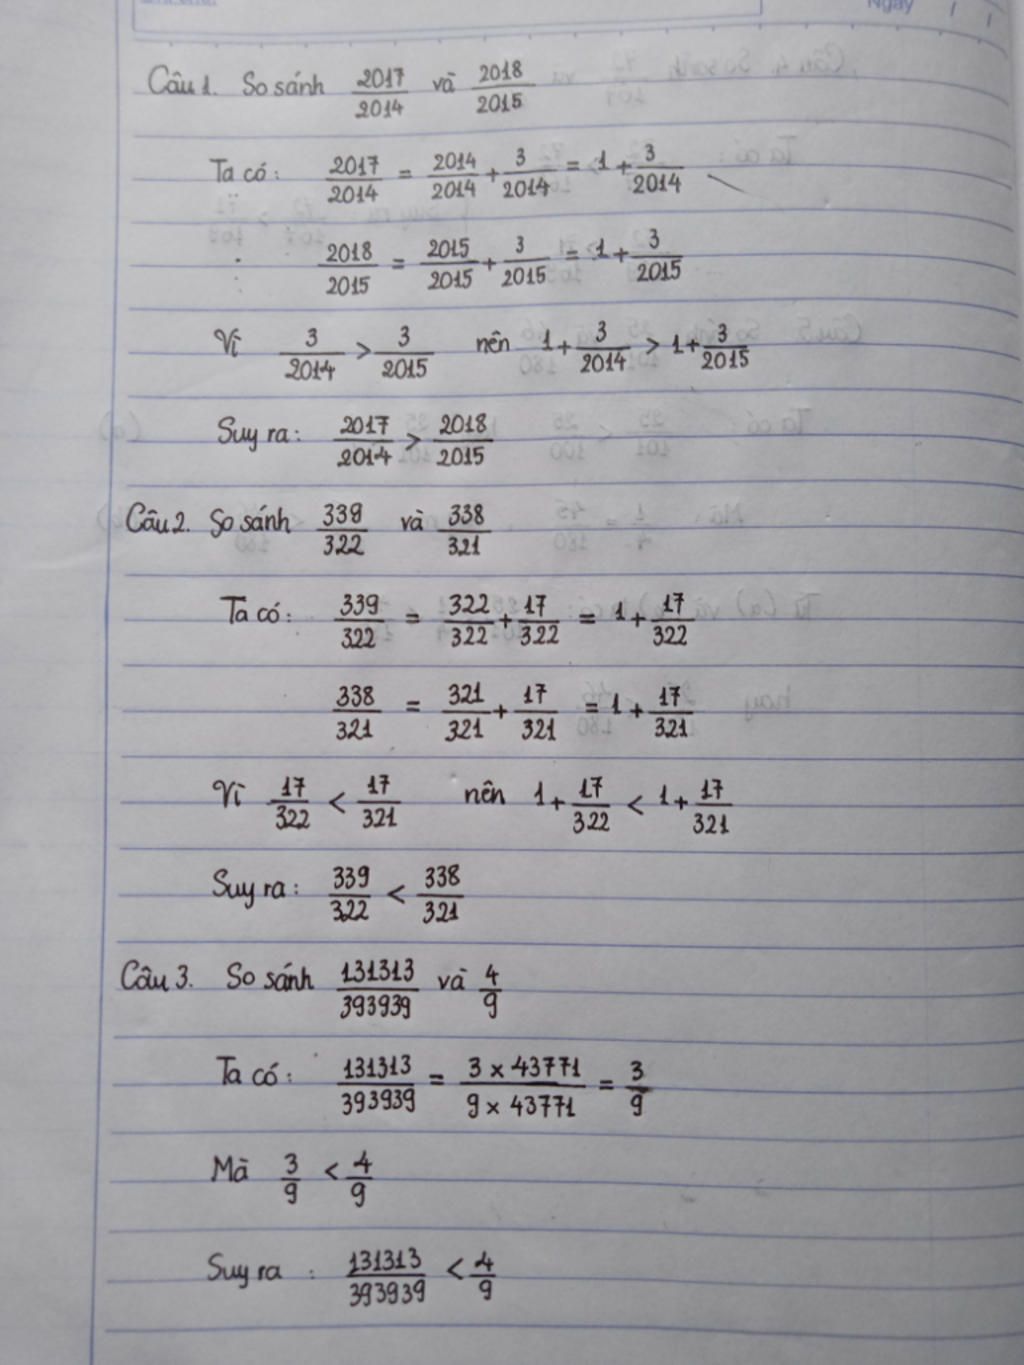 Ngày / /
Câu 1. So sánh 2017/2014 và 2018/2015
Ta có: 2017/2014 = 2014/2014 + 3/2014 = 1 + 3/2014
2018/2015 = 2015/2015 + 3/2015 = 1 + 3/2015
Vì 3/2014 > 3/2015 nên 1 + 3/2014 > 1 + 3/2015
Suy ra: 2017/2014 > 2018/2015
Câu 2. So sánh 339/322 và 338/321
Ta có: 339/322 = 322/322 + 17/322 = 1 + 17/322
338/321 = 321/321 + 17/321 = 1 + 17/321
Vì 17/322 < 17/321 nên 1 + 17/322 < 1 + 17/321
Suy ra: 339/322 < 338/321
Câu 3. So sánh 131313/393939 và 4/9
Ta có: 131313/393939 = 3 × 43771/9 × 43771 = 3/9
Mà 3/9 < 4/9
Suy ra : 131313/393939 < 4/9